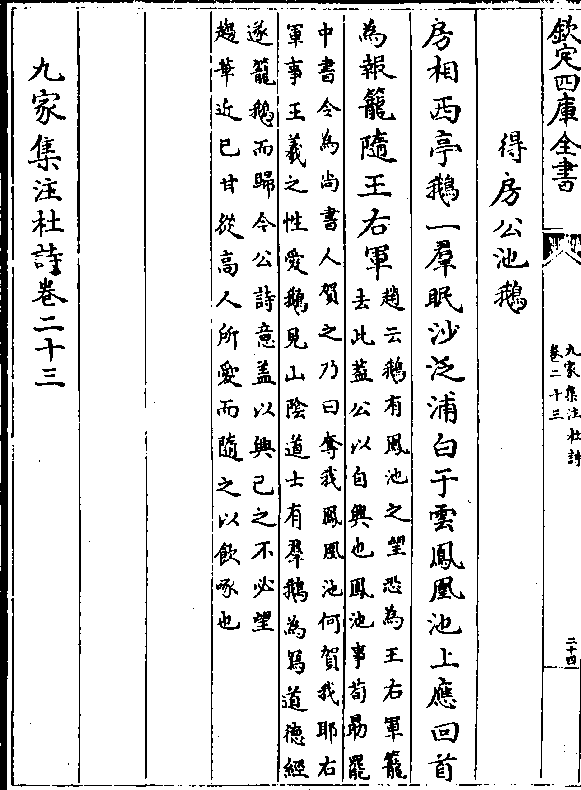 欽定四庫全書
九家集注杜詩
卷二十三
二十四
得房公池鵝
房相西亭鵝一羣眠沙泛浦白于雲鳳凰池上應回首
為報籠隨王右軍
趙云鵝有鳳池之望恐為王右軍籠
去此蓋公以自興也鳳池事荀勗罷
中書令為尚書人賀之乃曰奪我鳳凰池何賀我耶右
軍事王羲之性愛鵝見山陰道士有羣鵝為寫道德經
遂籠鵝而歸今公詩意蓋以興己之不必望
趨華近已甘從高人所愛而隨之以飲啄也
九家集注杜詩卷二十三